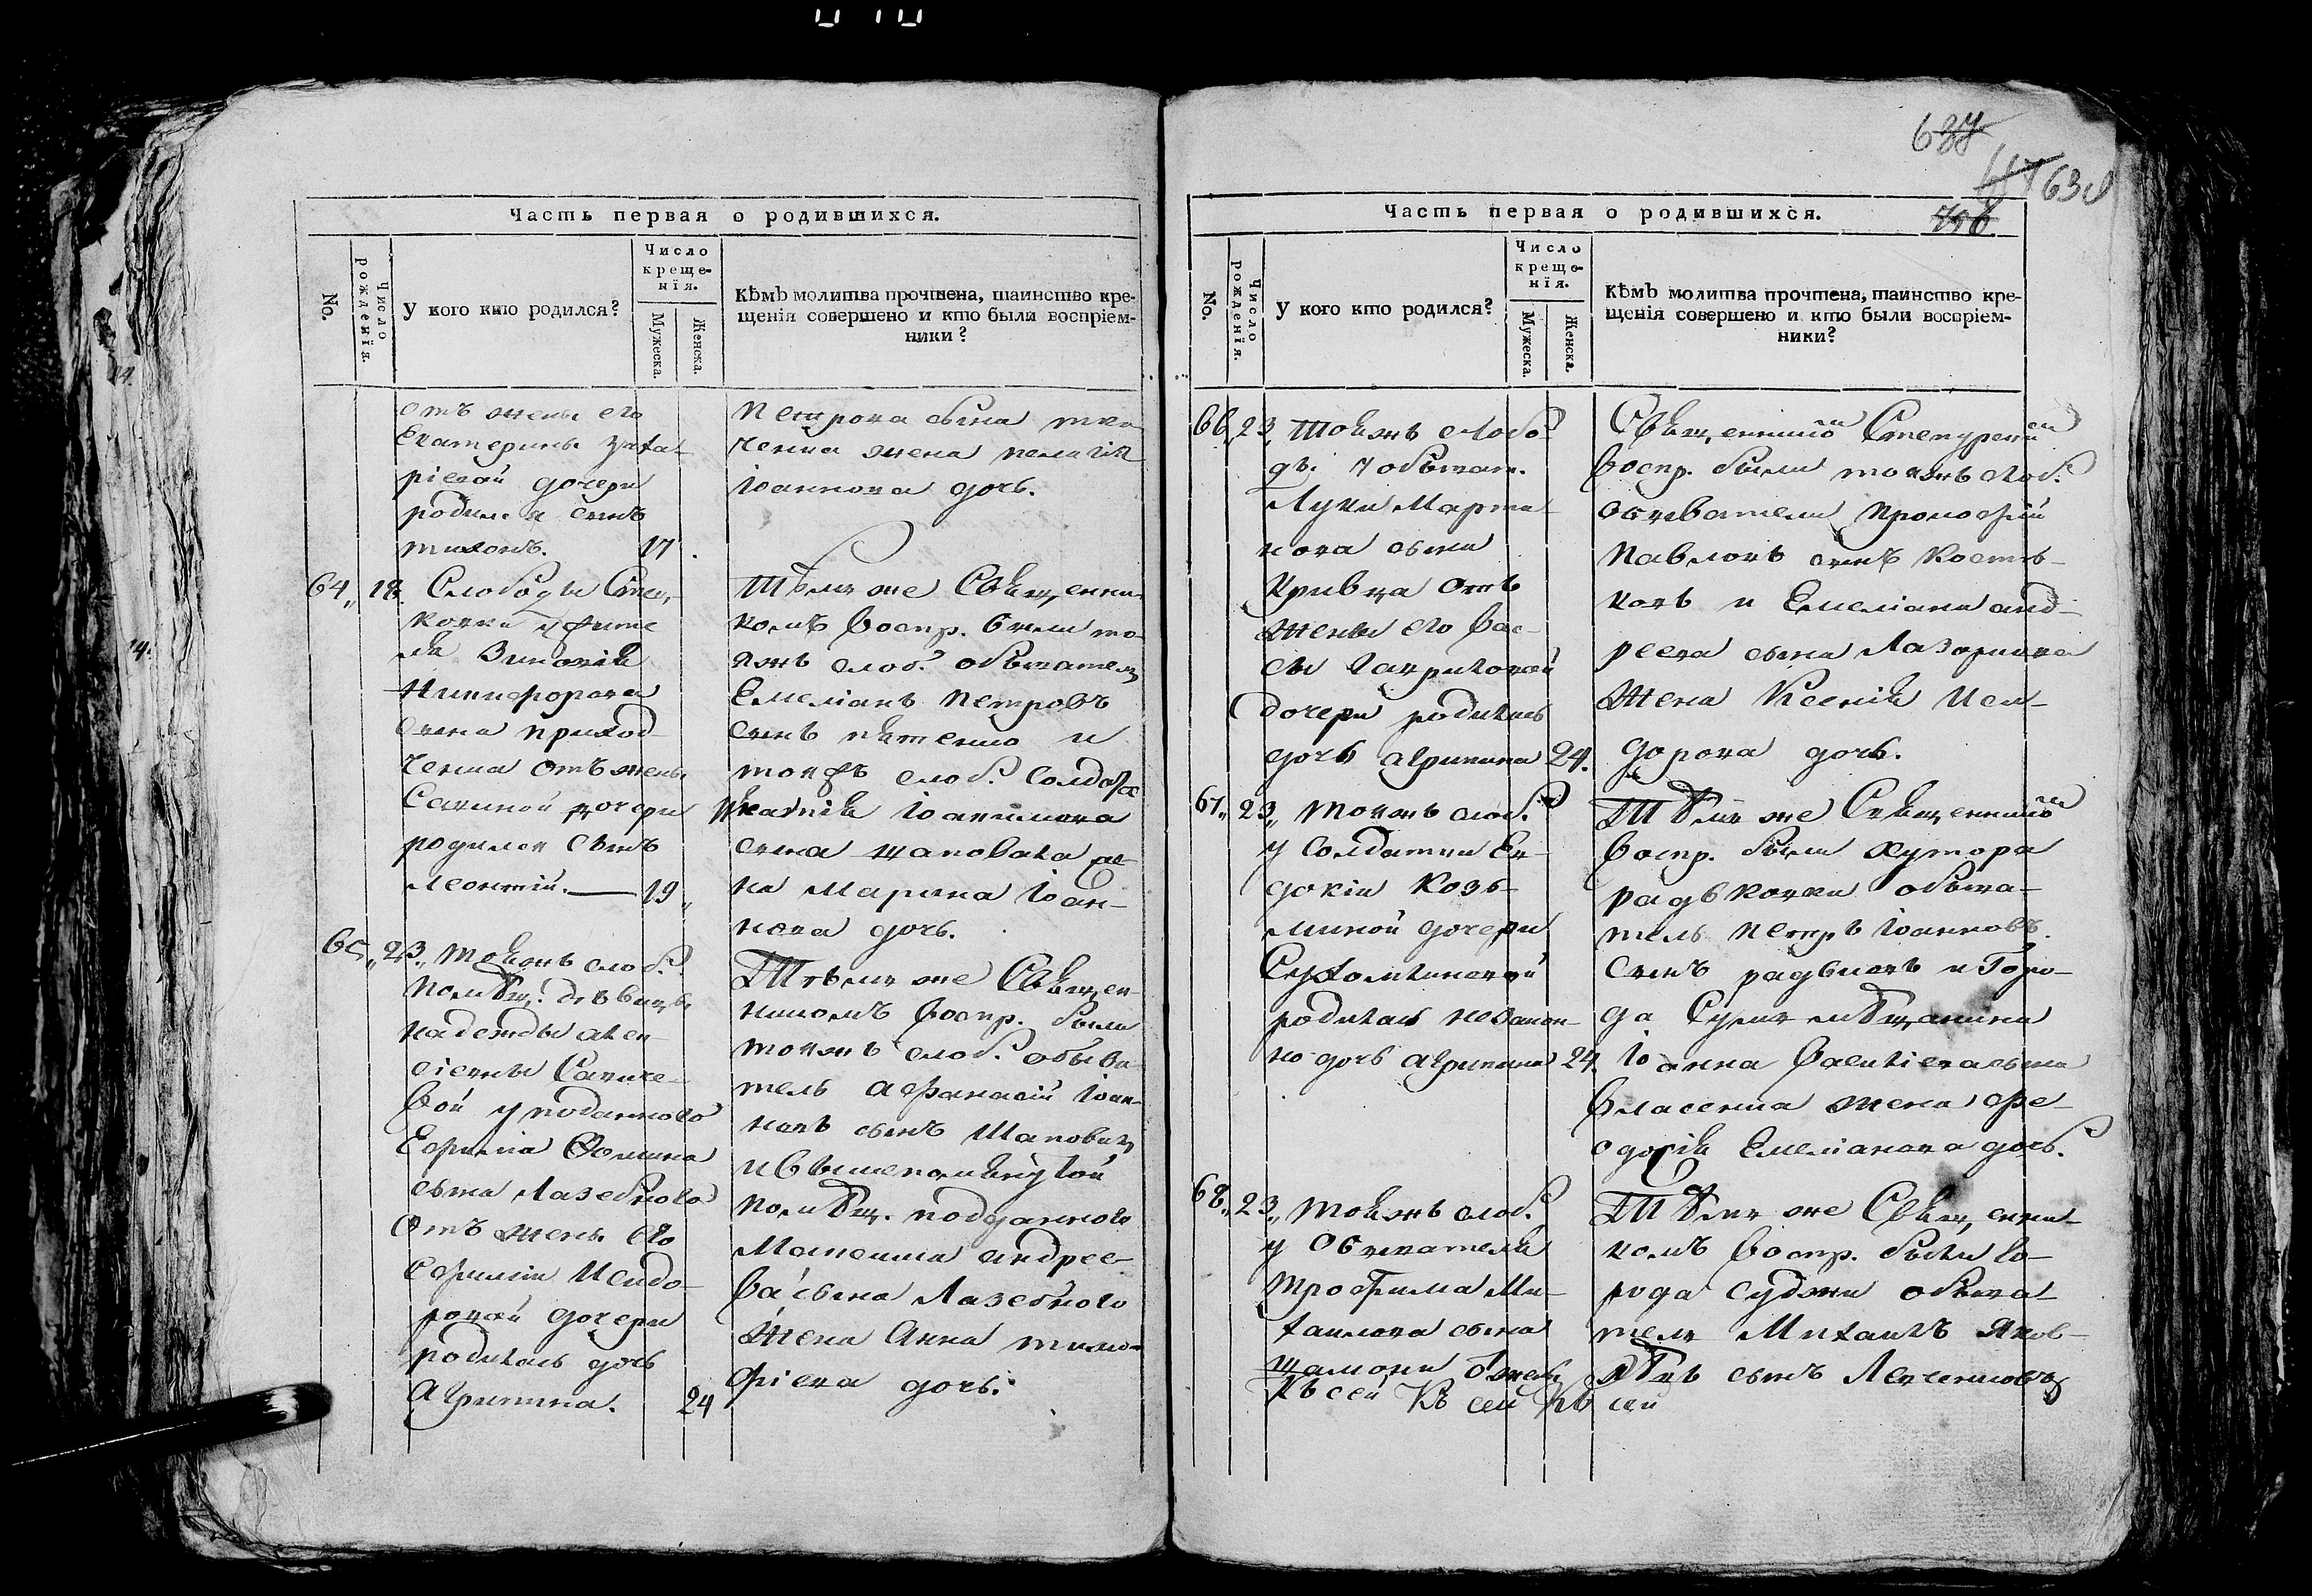 637
630
Часть первая о родившихся.
No.
Число рожденїя.
У кого кто родился?
Число креще-нїя.
Мужеска.
Женска.
Кѣмъ молитва прочтена, таинство кре-
щенія совершено и кто были воспріем-
ники?
отъ жены его
Екатерины Заха-
ріевой дочери
родился сынъ
тихонъ. 17.
Петрова сына тка
ченка жена пелагія
Іоаннова дочь.
64,, 18. Слободы
Зиновія
Никифорова
сына приход
ченка отъ жены
Савиной дочери
родился сынъ
леонтій. — 19,,
Тѣмъ же Священни-
комъ воспр. были то
яжъ слоб. обыватель
Емеліанъ петровъ
сынъ пятенко и
тояжъ слоб. солдата
Іоакимова
сына шаповала же
на Марина Іоан-
нова дочь.
65,, 23,, тояжъ слоб.
помѣщ. дѣвицы
надежды алек-
сіевны Савиче-
вой у подданного
Ефрема Фомина
сына Лазебного
отъ жены его
Ефимии Исидо-
ровой дочери
родилась дочь
Агрипина. 24
Тѣмъ же Священ-
никомъ воспр. были
тояжъ слоб. обыва
тель Афанасій Іоан-
новъ сынъ Шаповалъ
и вышепомянутой
помѣщ. подданного
Матвѣя андрее-
ва сына Лазебного
жена Анна тимо-
фіева дочь.
Часть первая о родившихся.
No.
Число рожденїя.
У кого кто родился?
Число креще-нїя.
Мужеска.
Женска.
Кѣмъ молитва прочтена, таинство кре-
щенія совершено и кто были воспріем-
ники?
66,, 23,, Тояжъ слобо-
ды у обыват.
Луки Марти-
нова сына
Кривца отъ
жены его Вас-
сы гавриловой
дочери родилась
дочь агрипина 24.
Священникомъ
воспр. были тояжъ слоб.
обыватели прокофій
павловъ сынъ
и Емеліана анд-
реева сына Лазарика
жена Ксенія Иси-
дорова дочь.
67,, 23,, тояжъ слоб.
у солдатки Ев-
докіи Козь-
миной дочери
Сухомлиновой
родилась незакон-
но дочь агрипина 24.
Тѣмъ же Священникомъ
воспр. были хутора
радьковки обыва-
тель петръ Іоанновъ
сынъ и Горо-
да Сумъ мѣщанина
Іоанна Василіева сына
власенка жена фе-
одосія Емеліанова дочь.
68,, 23,, тояжъ слоб.
у обывателя
трофима Ми-
хаилова сына
отъ жены
Тѣмъ же Священни-
комъ воспр. были го-
рода суджи обыва-
тель Михаилъ Яков-
лѣвъ сынъ
Къ сей Къ сей Къ сей